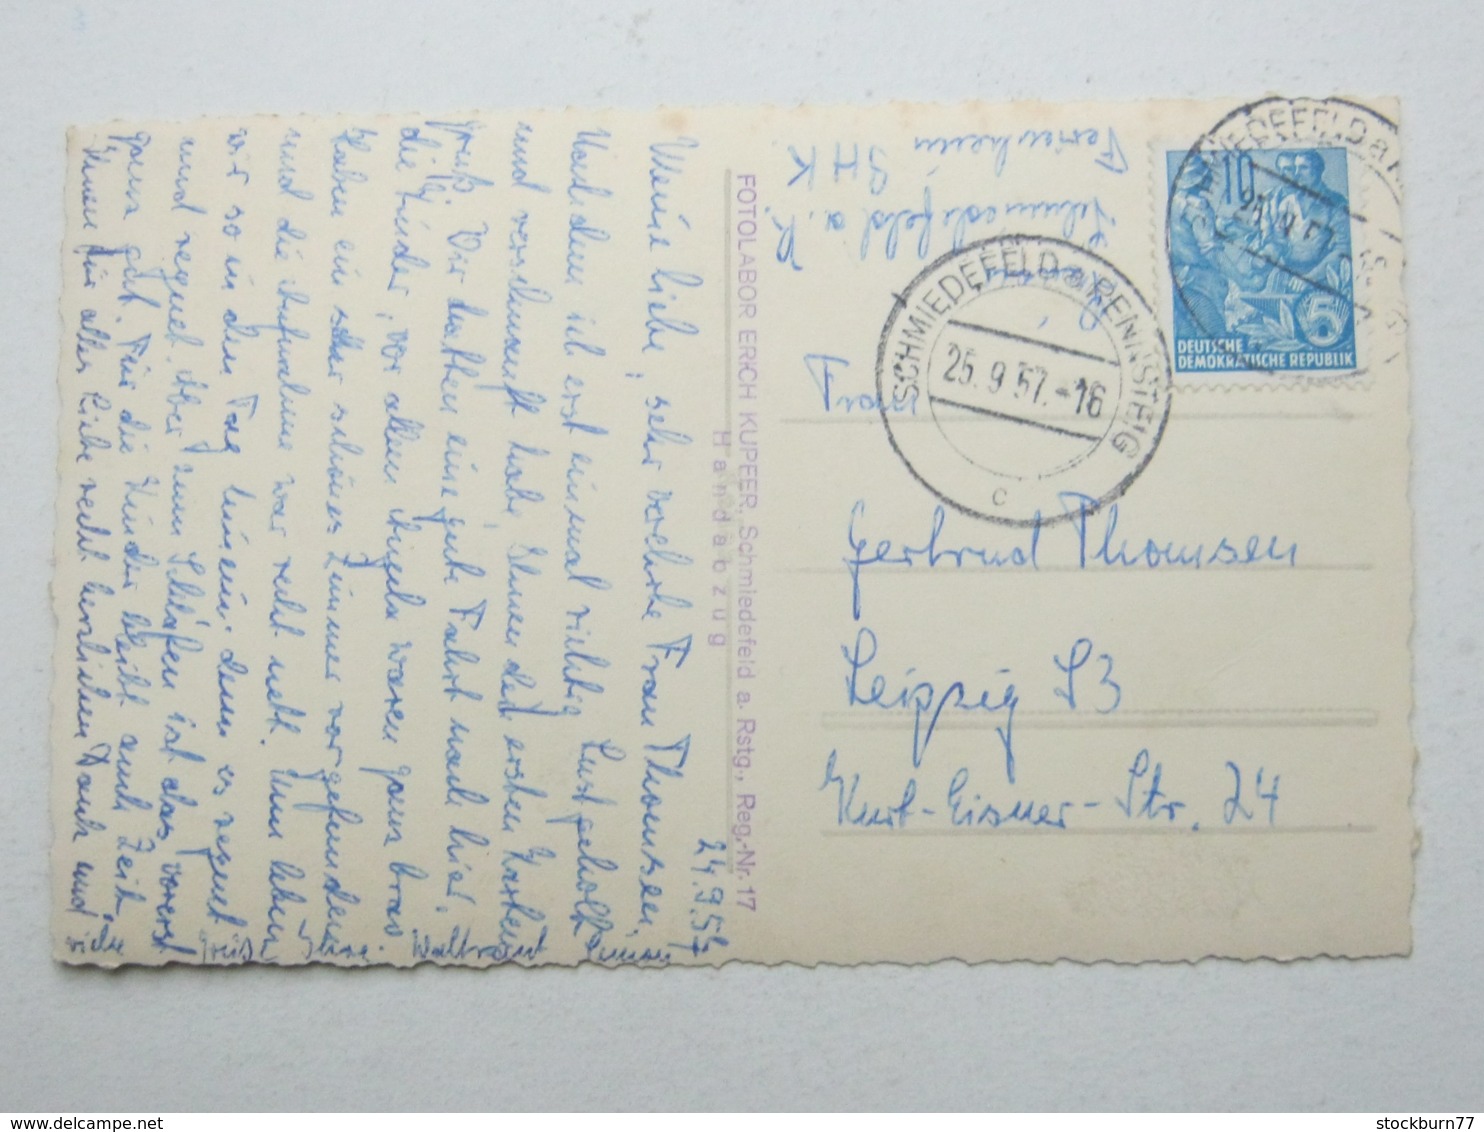 24.9.57
Meine liebe, sehr verehrte Frau Thomsen,
Nachdem ich erst einmal richtig Luft geholt
und verschnauft habe, Ihnen den ersten Karten
gruß. Wir hatten eine gute Fahrt nach hier,
die Kinder, vor allem Angela waren ganz brav.
Haben ein sehr schönes Zimmer vorgefunden
und die Aufnahme war recht nett. Nun leben
wir so in den Tag hinein, denn es regnet
und regnet. Aber zum Schlafen ist das vorerst
ganz gut. Für die Kinder bleibt auch Zeit.
Ihnen für alles Liebe recht herzlichen Dank und
viele Grüße Ihre Waltraut
FOTOLABOR ERICH KUPEER, Schmiedefeld a. Rstg., Reg.-Nr. 17
Handabzug
Schmiedefeld a. R.
Ferienheim
SCHMIEDEFELD a RENNSTEIG
25.9.57.-16
c
SCHMIEDEFELD a R
25.9.57
10
5
DEUTSCHE
DEMOKRATISCHE REPUBLIK
Frau
Gertrud Thomsen
Leipzig S3
Kurt-Eisner-Str. 24
stockburn77